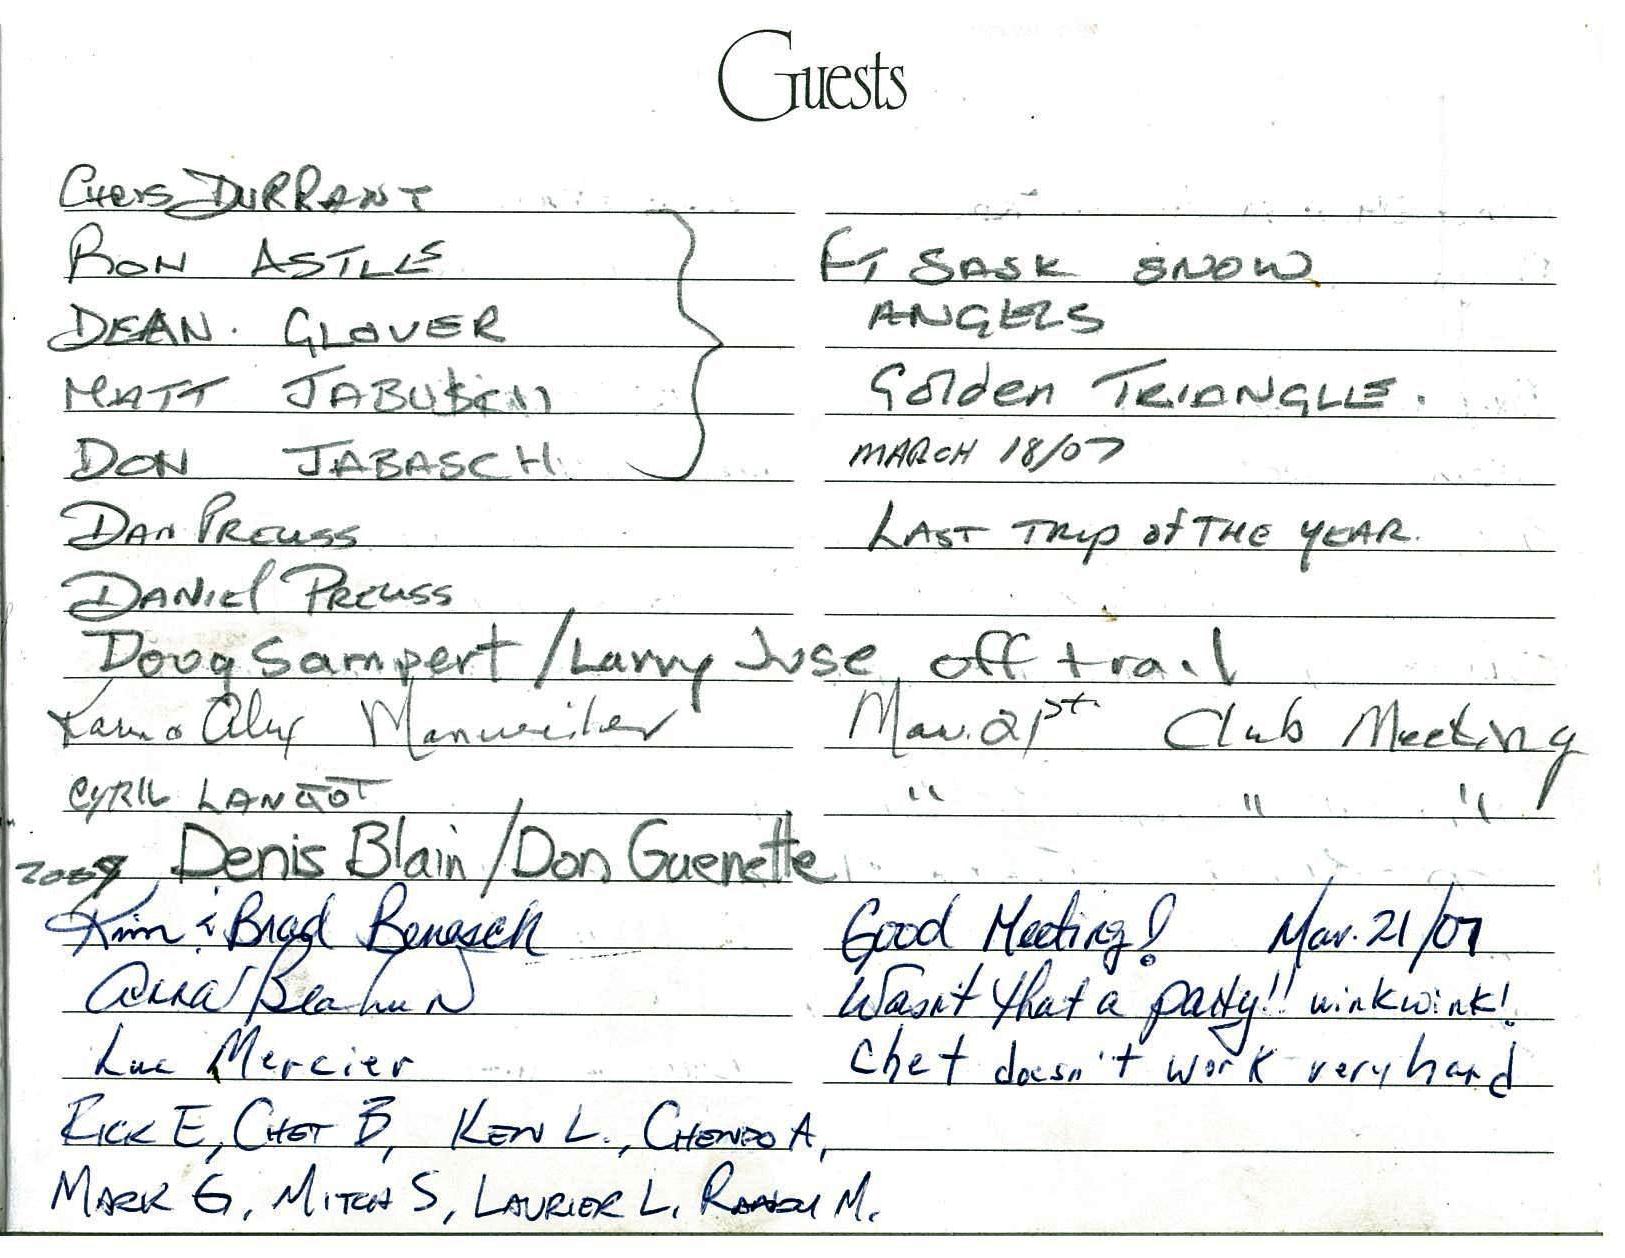 Guests
Chris DURRANT
RON ASTLE FT SASK SNOW
DEAN. GLOVER ANGELS
MATT JABUSCH Golden TRIANGLE.
DON JABASCH. MARCH 18/07
DAN PREUSS LAST TRIP of THE YEAR.
DANIEL PREUSS
Doug Sampert / Larry Juse off trail
Alex Manweiler Mar. 21st. Club Meeting
CYRIL LANGOT " " "
Denis Blain / Don Guenette
Kim & Brad Benasch Good Meeting! Mar. 21/07
Wasn't that a party!! wink wink!
Luc Mercier Chet doesn't work very hard
RICK E, CHET B, KEN L., CHENDO A,
MARK G, MITCH S, LAURIER L, RANDY M.